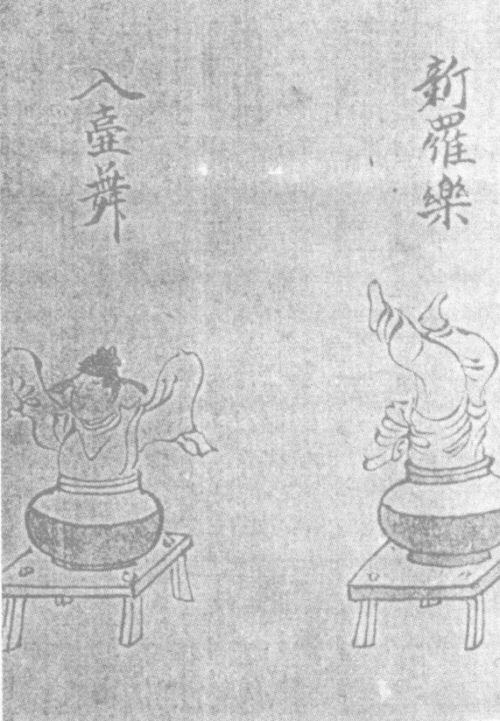 新羅樂
入壷舞